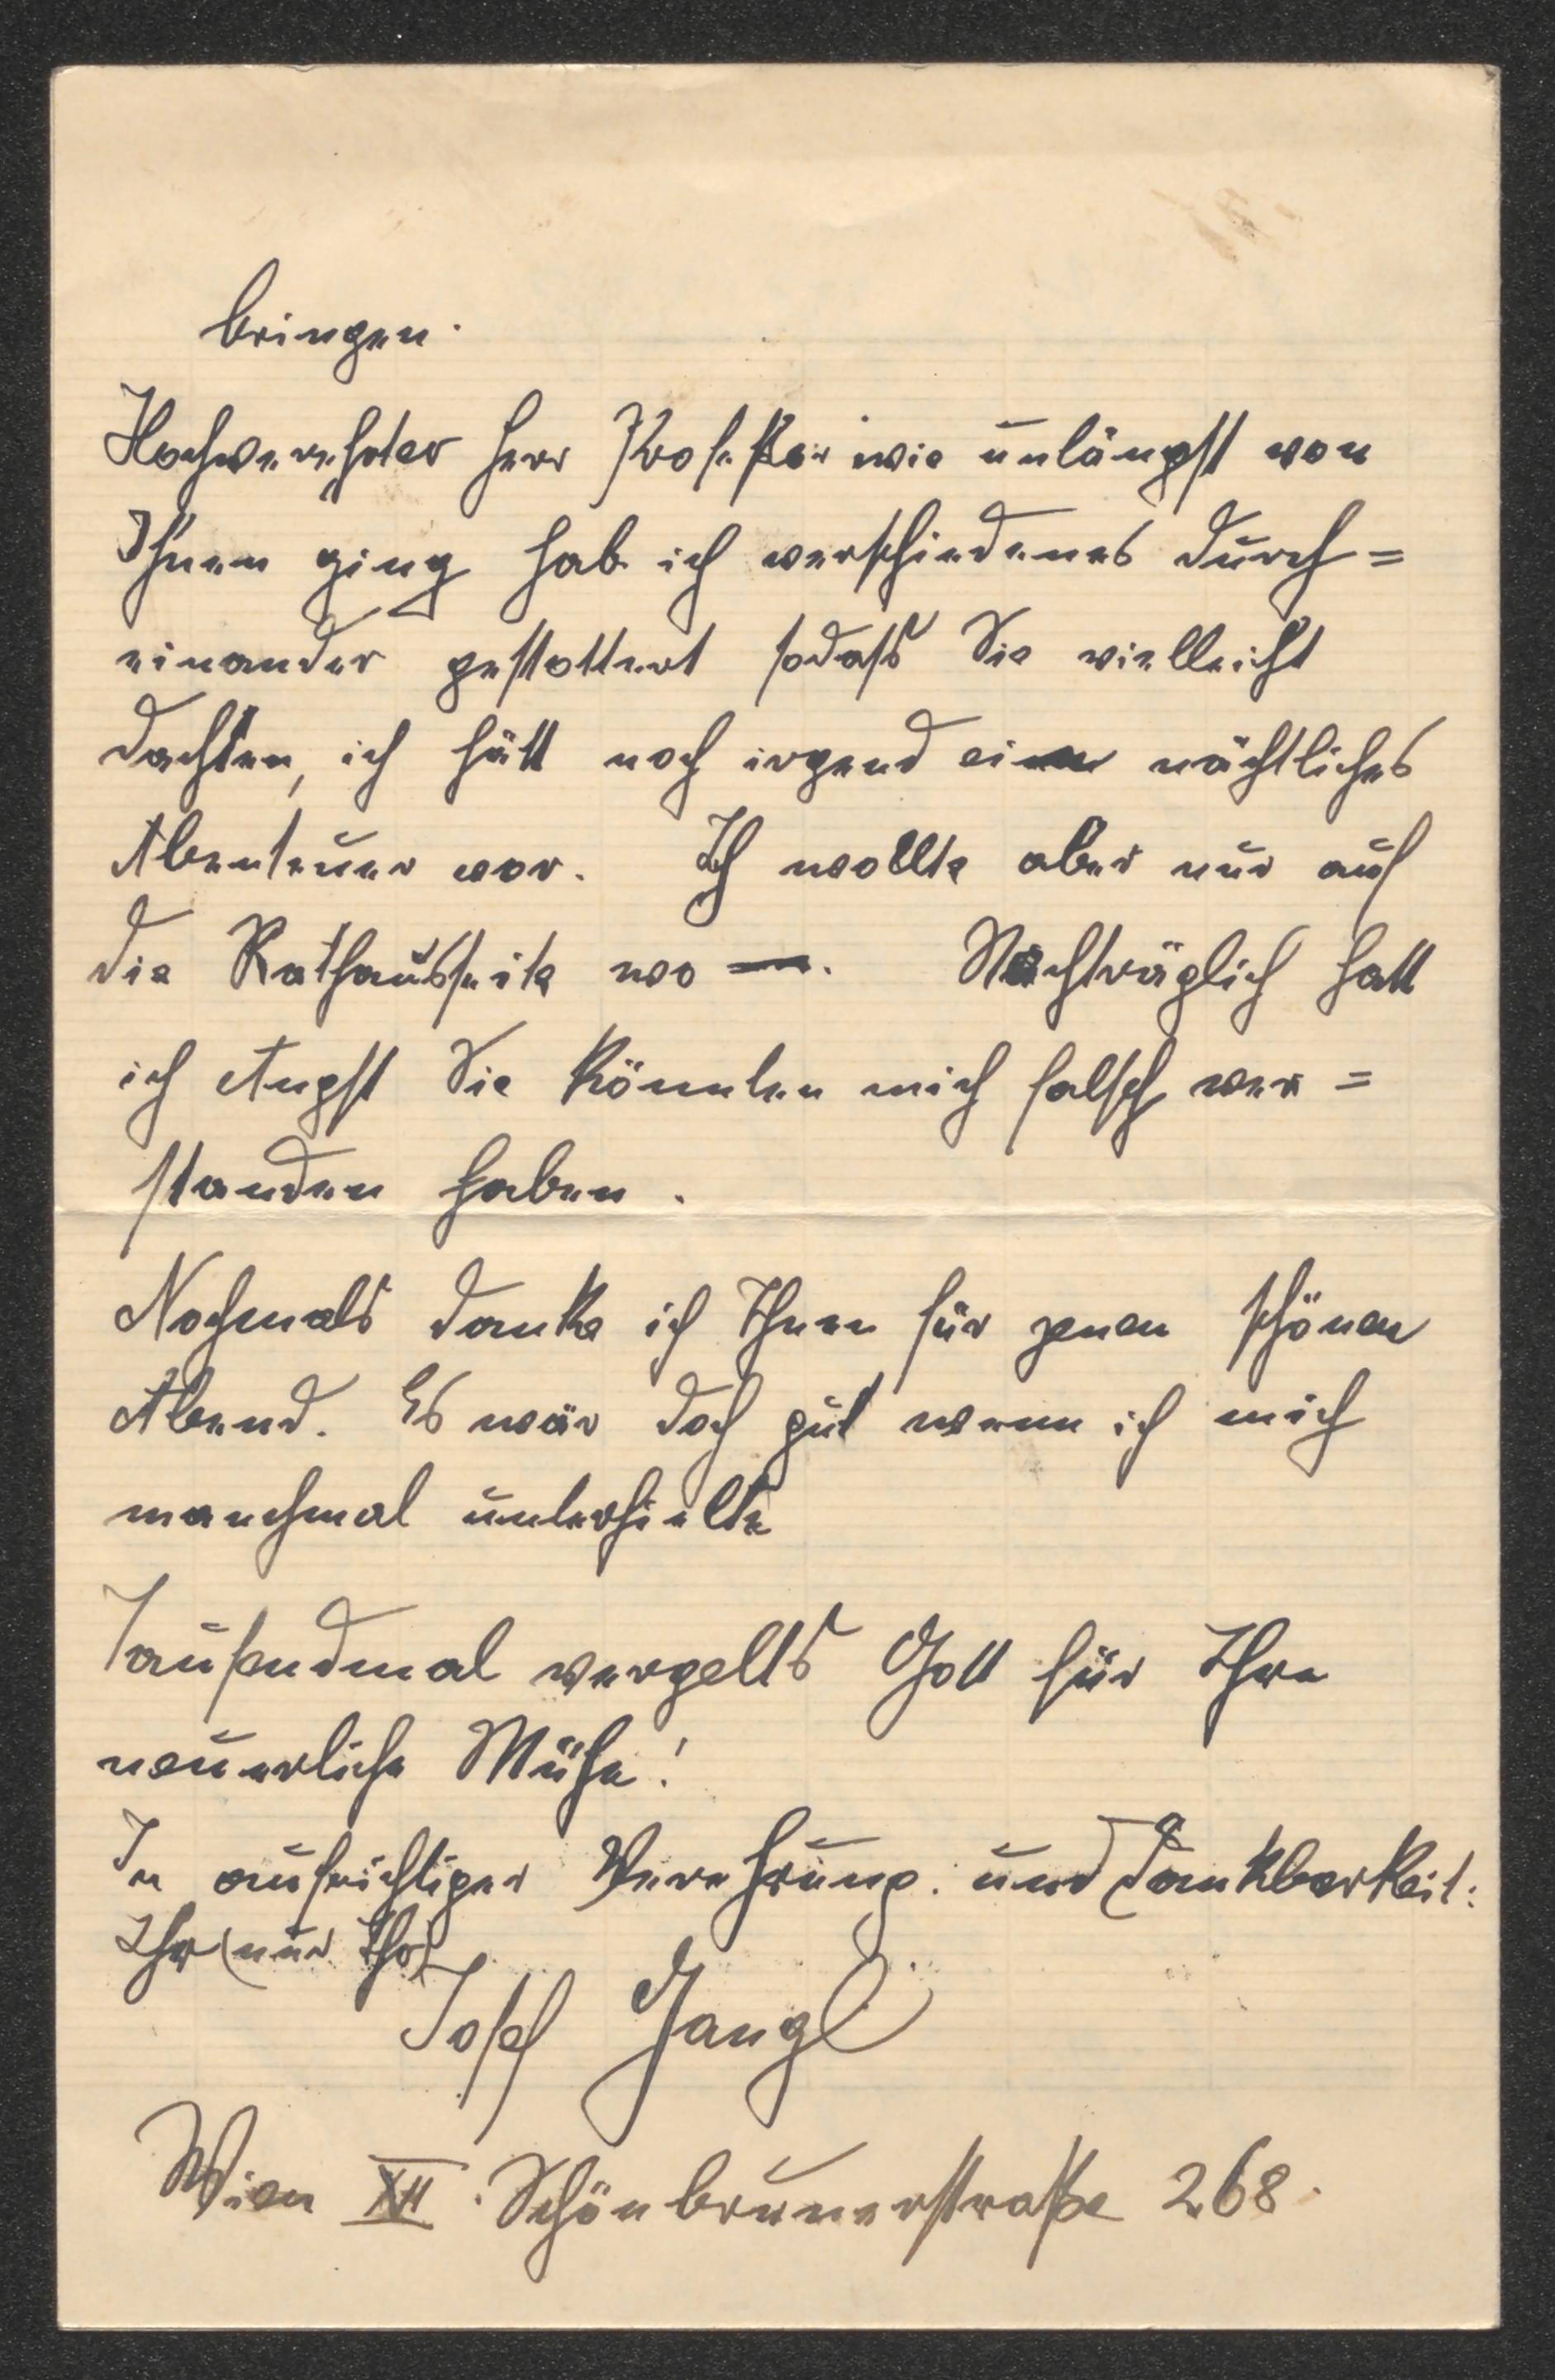 bringen.
Hochverehrter Herr Professor wie unlängst von
Ihnen ging hab ich verschiedenes durch=
einander gestottert sodass Sie vielleicht
dachten, ich hätt noch irgend ein nächtliches
Abenteuer vor. Ich wollte aber nur auf
die Rathausseite wo. Nachträglich hatt
ich Angst Sie könnten mich falsch ver=
standen haben.
Nochmals danke ich Ihnen für jenen schönen
Abend. Es wär doch gut wenn ich mich
manchmal unterhielte
Tausendmal vergelts Gott für Ihre
neuerliche Mühe!
In aufrichtiger Verehrung und Dankbarkeit:
Ihr (nur Ihr)
Josef Gangl
Wien XII. Schönbrunnerstraße 268.